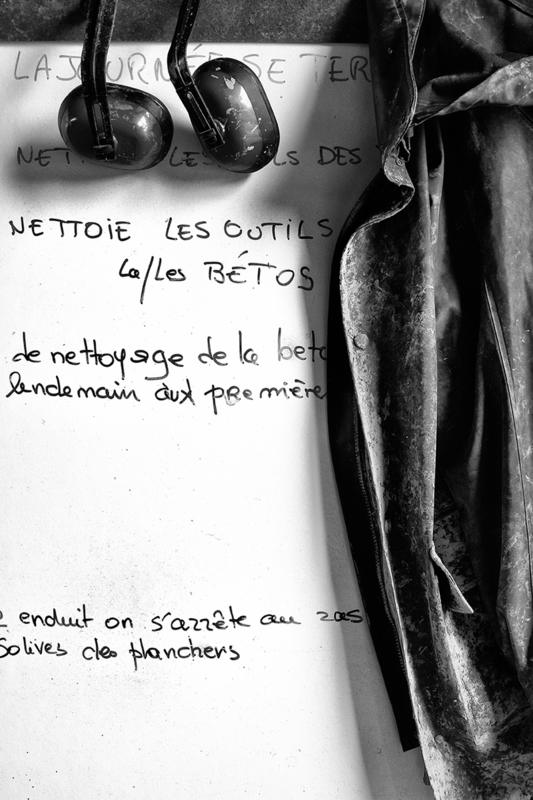 LA JOURNÉE SE TER
NET LES ILS DES
NETTOIE LES OUTILS
La/Les BÉTOS
de nettoyage de la beto
lendemain aux première
enduit on s'arrête au ras
Solives des planchers